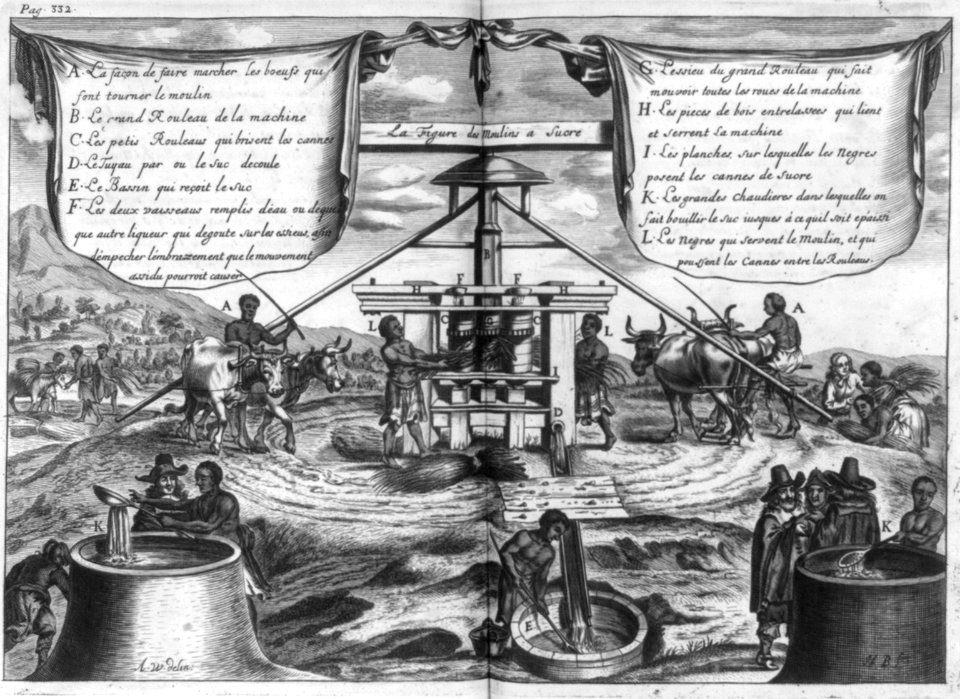 Pag. 332.
A. La façon de faire marcher les boeufs qui
font tourner le moulin
B. Le grand Rouleau de la machine
C. Les petis Rouleaus qui brisent les cannes
D. Le Tuyau par ou le suc decoule
E. Le Bassin qui reçoit le suc
F. Les deux vaisseaus remplis d'eau ou de quel
que autre liqueur qui degoute sur les essieus, afin
d'empecher l'embrazement que le mouvement
assidu pourroit causer.
La Figure des Moulins a Sucre
G. L'essieu du grand Rouleau qui fait
mouvoir toutes les roues de la machine
H. Les pieces de bois entrelassees qui lient
et serrent la machine
I. Les planches, sur lesquelles les Negres
posent les cannes de sucre
K. Les grandes chaudieres dans lesquelles on
fait bouillir le suc iusques à ce qu'il soit epaissi
L. Les Negres qui servent le Moulin, et qui
poussent les Cannes entre les Rouleaus.
B
F F
H H
A
L
C G C
L
A
I
D
K
K
E
A. W. delin.